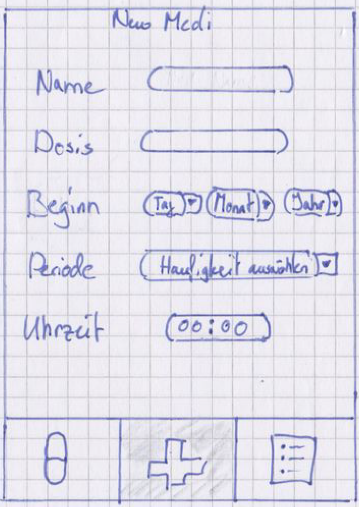 New Medi
Name
Dosis
Beginn Tag Monat Jahr
Periode Häufigkeit auswählen
Uhrzeit 00:00